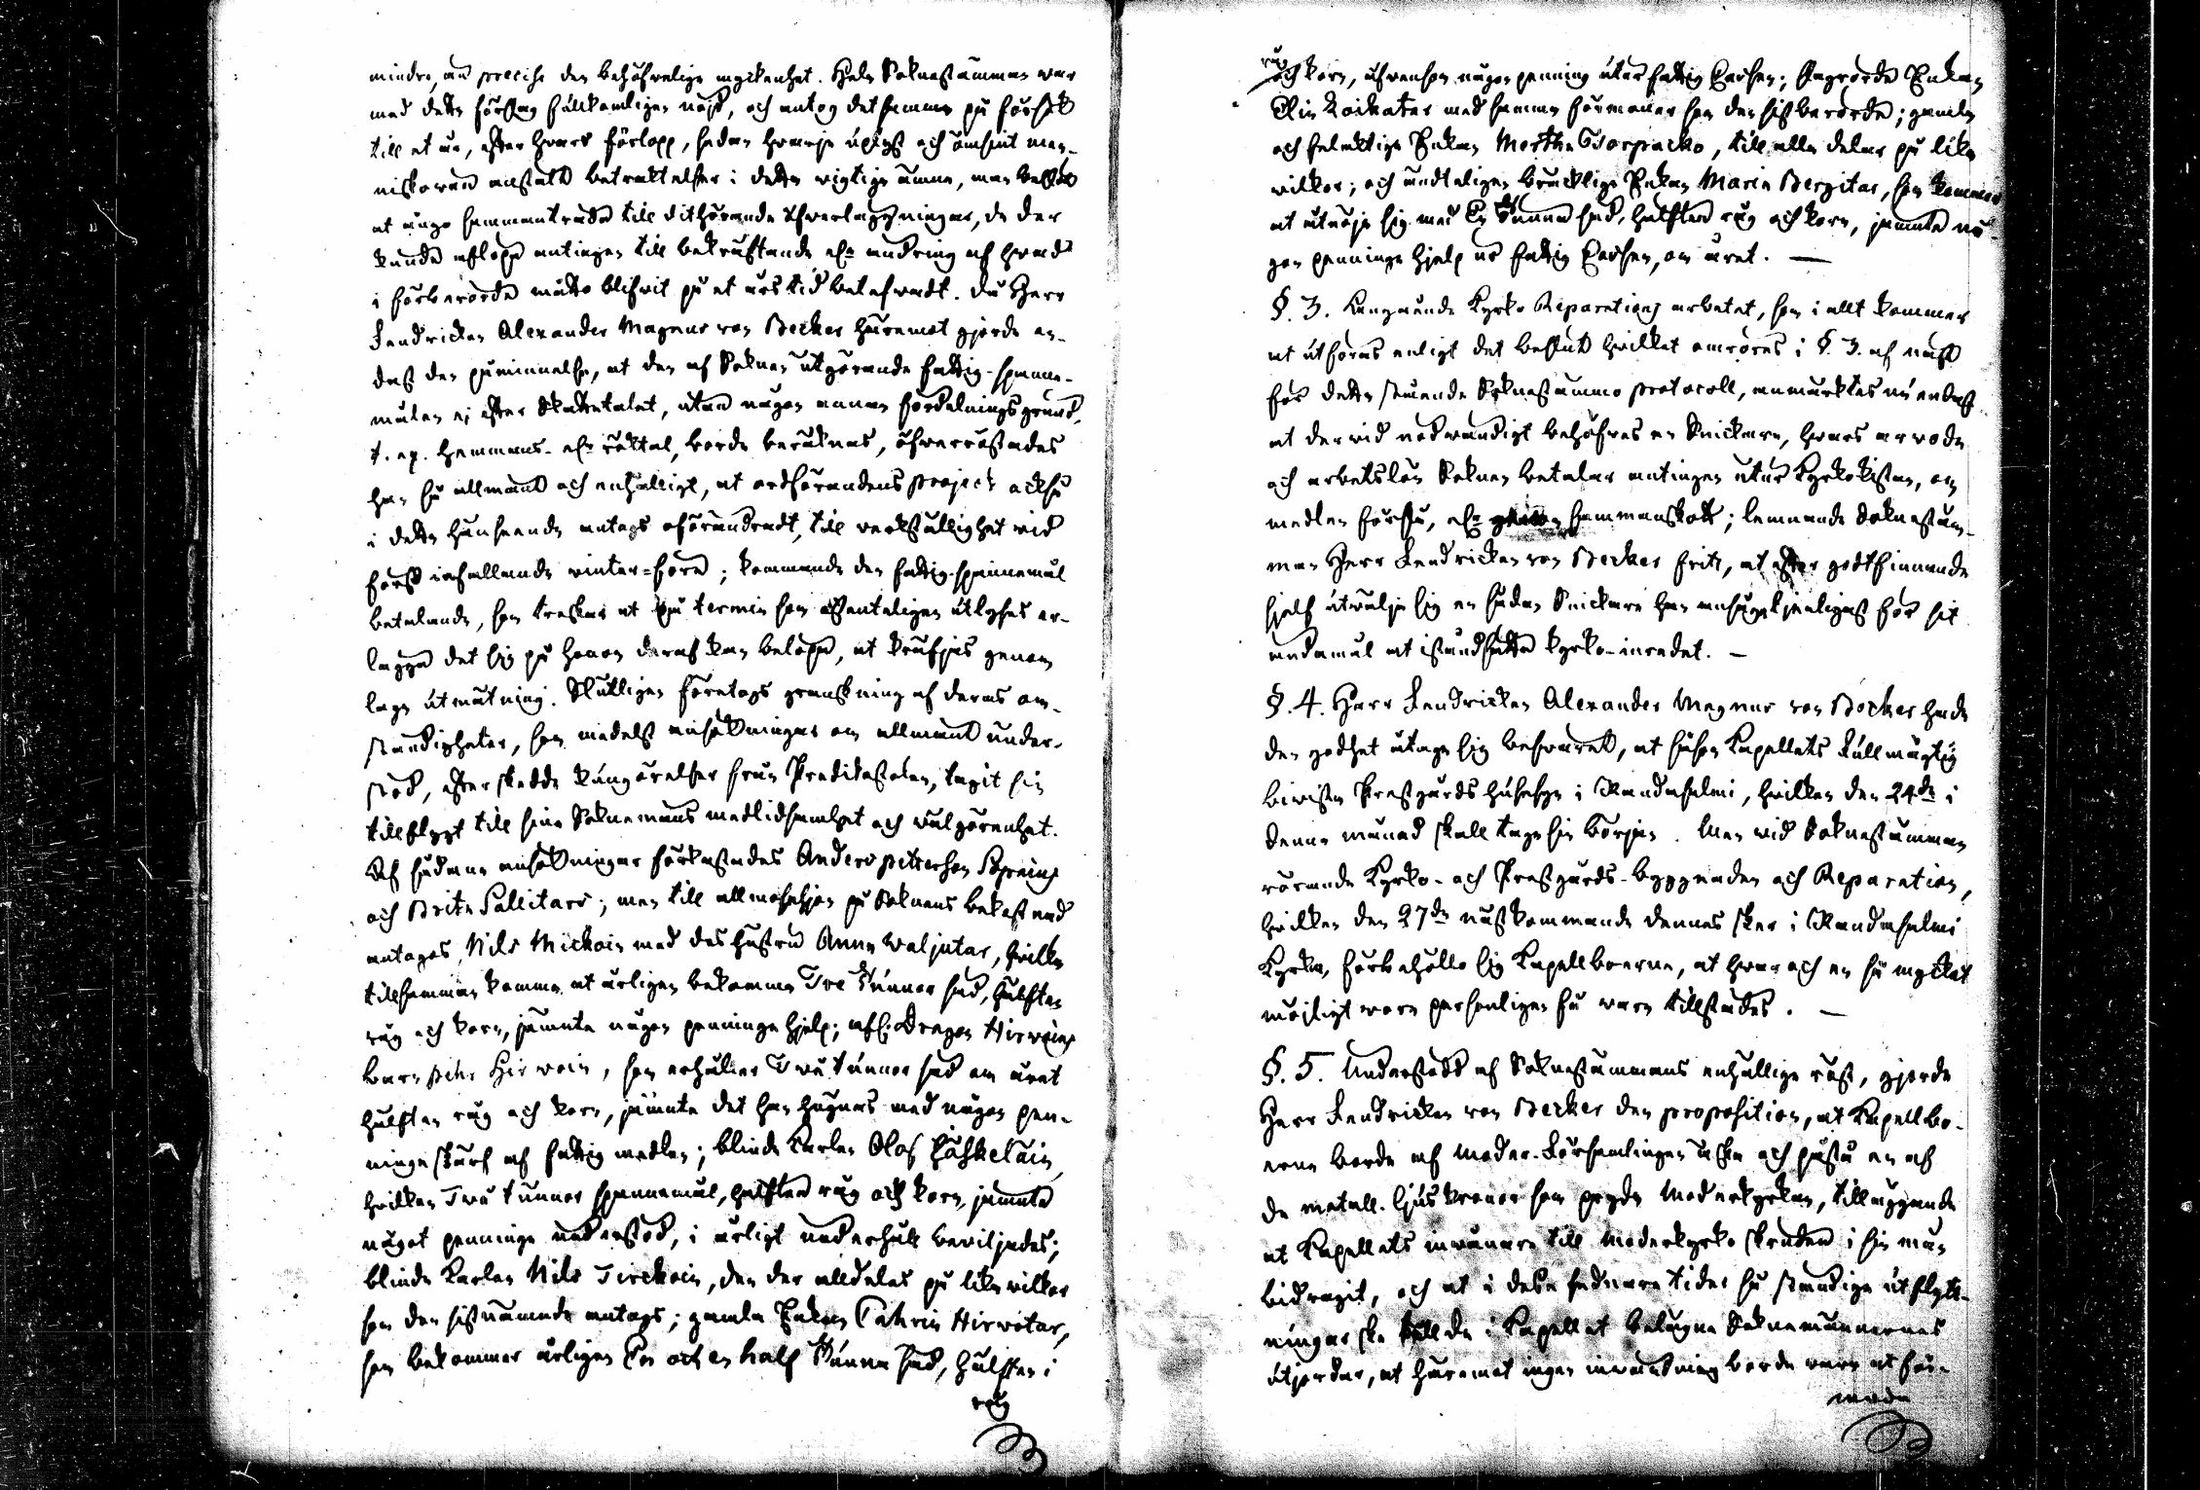 mindre, än precise den behöfwelige myckenhet. Hela Soknestämman war
med detta förslag fullkomligen nögd, och antog detsamma på försök
till et år, efter hwars förlopp, sedan hwarje ålägt och ömsint men-
niskowän anstält betraktelser i detta wigtiga ämne, man beslöt
at ånyo sammanträda till dithörande öfwerläggningar, da der
kunde aflöpa antingen till bekräftande eller ändring af hwad
i förberörde måtto blifwit på et års tid betafwadt. Då Herr
Fendricken Alexander Magnus von Becker häremot gjorde en-
dast den påminnelse, at den af Soknen utgörande fattig-spanne-
målen ej efter Skattetalet, utan någon annan fördelningsgrund,
t. ex. Hemmans- eller röktal, borde beräknas, öfwerröstades
han så allmänt och enhälligt, at ordförandens project också
i detta hänseende antogs oförändradt, till verkställighet vid
först infallande winter-före; kommande den fattig-spannemål
betalande, som treskar at på termin som offenteligen utlyses er-
lägga det sig på honom deraf kan belöpa, at kräfjas genom
laga utmätning. Slutligen företogs granskning af deras om-
ständigheter, som medelst ansökningar om allmänt under-
stöd, efter skedde kungörelser från Predikostolen, tagit sin
tillflygt till sine Soknemäns medlidsamhet och wälgörenhet.
Af sådane ansökningar förkastades Anders Petterson Repcing
och Brita Pallitar; men till allmosehjon på Soknens bekostnad
antages, Nils Mickoin med des hustru Anna Waljutar, hwilka
tillsamman komma at årligen bekomma Tve Tunnor säd, hälften
råg och korn, jämnte någon penninge hjelp; afl. Dragon Hirwoins
barn Pehr Hirwoin, som erhåller Två tunnor säd om året
hälften råg och korn, jämnte det han hugnas med någon pen-
ninge skärf af fattig medlen; blinde karlen Olof Häskeläin,
hwilken Twå tunnor spannemål, hälften råg och korn, jämnte
något penninge understöd, i årligt underhåll beviljades;
blinde Karlen Nils Tirckoin, den der alldeles på lika wilkor
som den sistnämnde antags; gamla Enkan Cahrin Hirwotar,
som bekommer årligen En och en half Tunna säd, hälften i
råg
råg
och korn, äfwensom någon penning utur fattig Cassen; sängrörda Enkan
Elin Koikatar med samma förmoner som den sist berörde; gamla
och felaktiga Enkan Martha Tsorpacko, till alla delar på lika
wilkor; och ändteligen bräcklige Enkan Maria Bergitar, som kommer
at åtnöja sig med En Tunna säd, hälften råg och korn, jämnte nå-
gon penninge hjelp ur fattig Cassen, om året. —
§. 3. Angående Kyrko Reparations arbetet, som i allt kommer
at utföras enligt det beslut hwilket omröres i §. 3. af näst
för detta stående Soknestämmo protocoll, anmärktes nu endast
at der vid nödwändigt behöfves en Snickare, hwars arvode
och arbetslön Soknen betalar antingen utur Kyrkokistan, om
medlen förslå, eller genom sammanskott; lemnande Soknestäm-
man Herr Fendricken von Becker fritt, at efter godtfinnande
sjelf utwälja sig en sådan Snickare han ansåge tjenligast för sit
ändamål at istandsätta Kyrko-inredet. —
§. 4. Herr Fendricken Alexander Magnus von Becker hade
den godhet åtaga sig beswäret, at såsom Kapellets Fullmägtig
biwista Prestgårds Husesyn i Randasalmi, hwilken den 24de i
denne månad skall taga sin början. Men vid Soknestämman
rörande Kyrko- och Prestgårds-byggnaden och Reparation,
hwilken den 27de nästkommande dennes sker i Randasalmi
Kyrka, förbehöllo sig Kapellboerne, at hwar och en så mycket
möjligt vore personligen få wara tillstädes. —
§. 5. Understödd af Soknestämmans enhällige röst, gjorde
Herr Fendricken von Becker den proposition, at Kapellbo-
erne borde af Moder-Församlingen äska och påstå en af
de metall-ljuskronor som pryda Moderkyrkan, tilläggande
at Kapellets inwånare till Moderkyrko skruden i sin mån
bidragit, och at i desse sednare tider så ständige utflytt-
ningar ske till de i Kapellet belägne Soknemännernes
utjordar, at häremot ingen inwändning borde vara at för-
moda